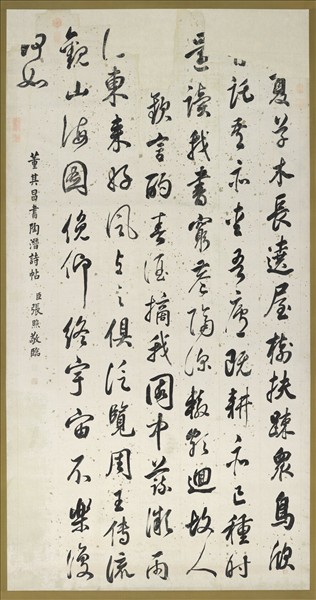 夏草木長遶屋樹扶疎眾鳥欣
託亦愛吾廬既耕亦已種時
還讀我書窮巷隔深轍頗迴故人
歡言酌春酒摘我園中蔬微雨
東來好風與之俱汎覽周王傳流
觀山海圖俛仰終宇宙不樂復
何如
董其昌書陶潛詩帖 臣張照敬臨